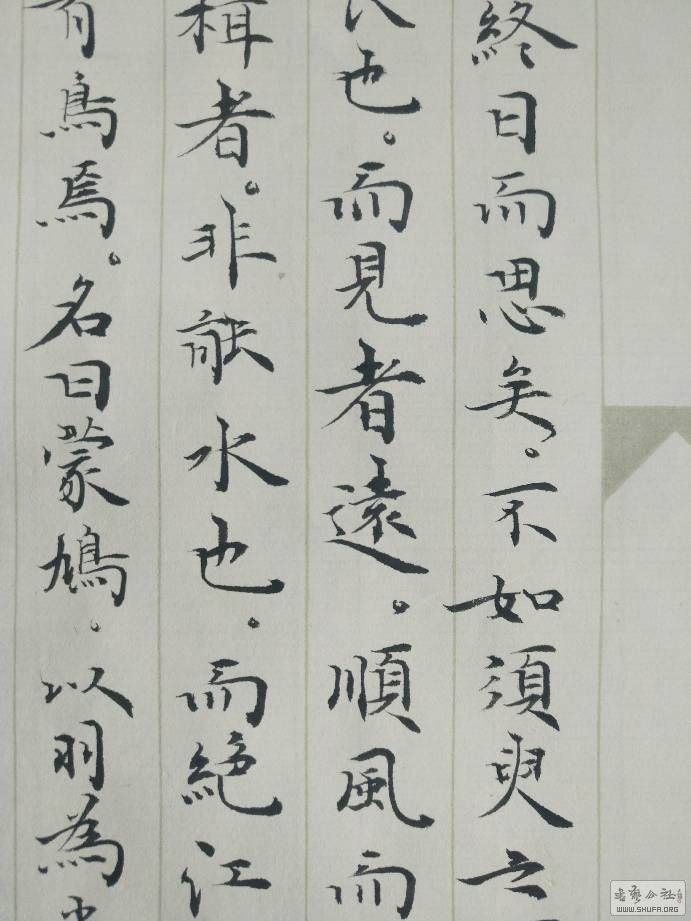 終日而思矣。不如須臾之
也。而見者遠。順風而
楫者。非能水也。而絕江
有鳥焉。名曰蒙鳩。以羽為
WWW.SHUFA.ORG